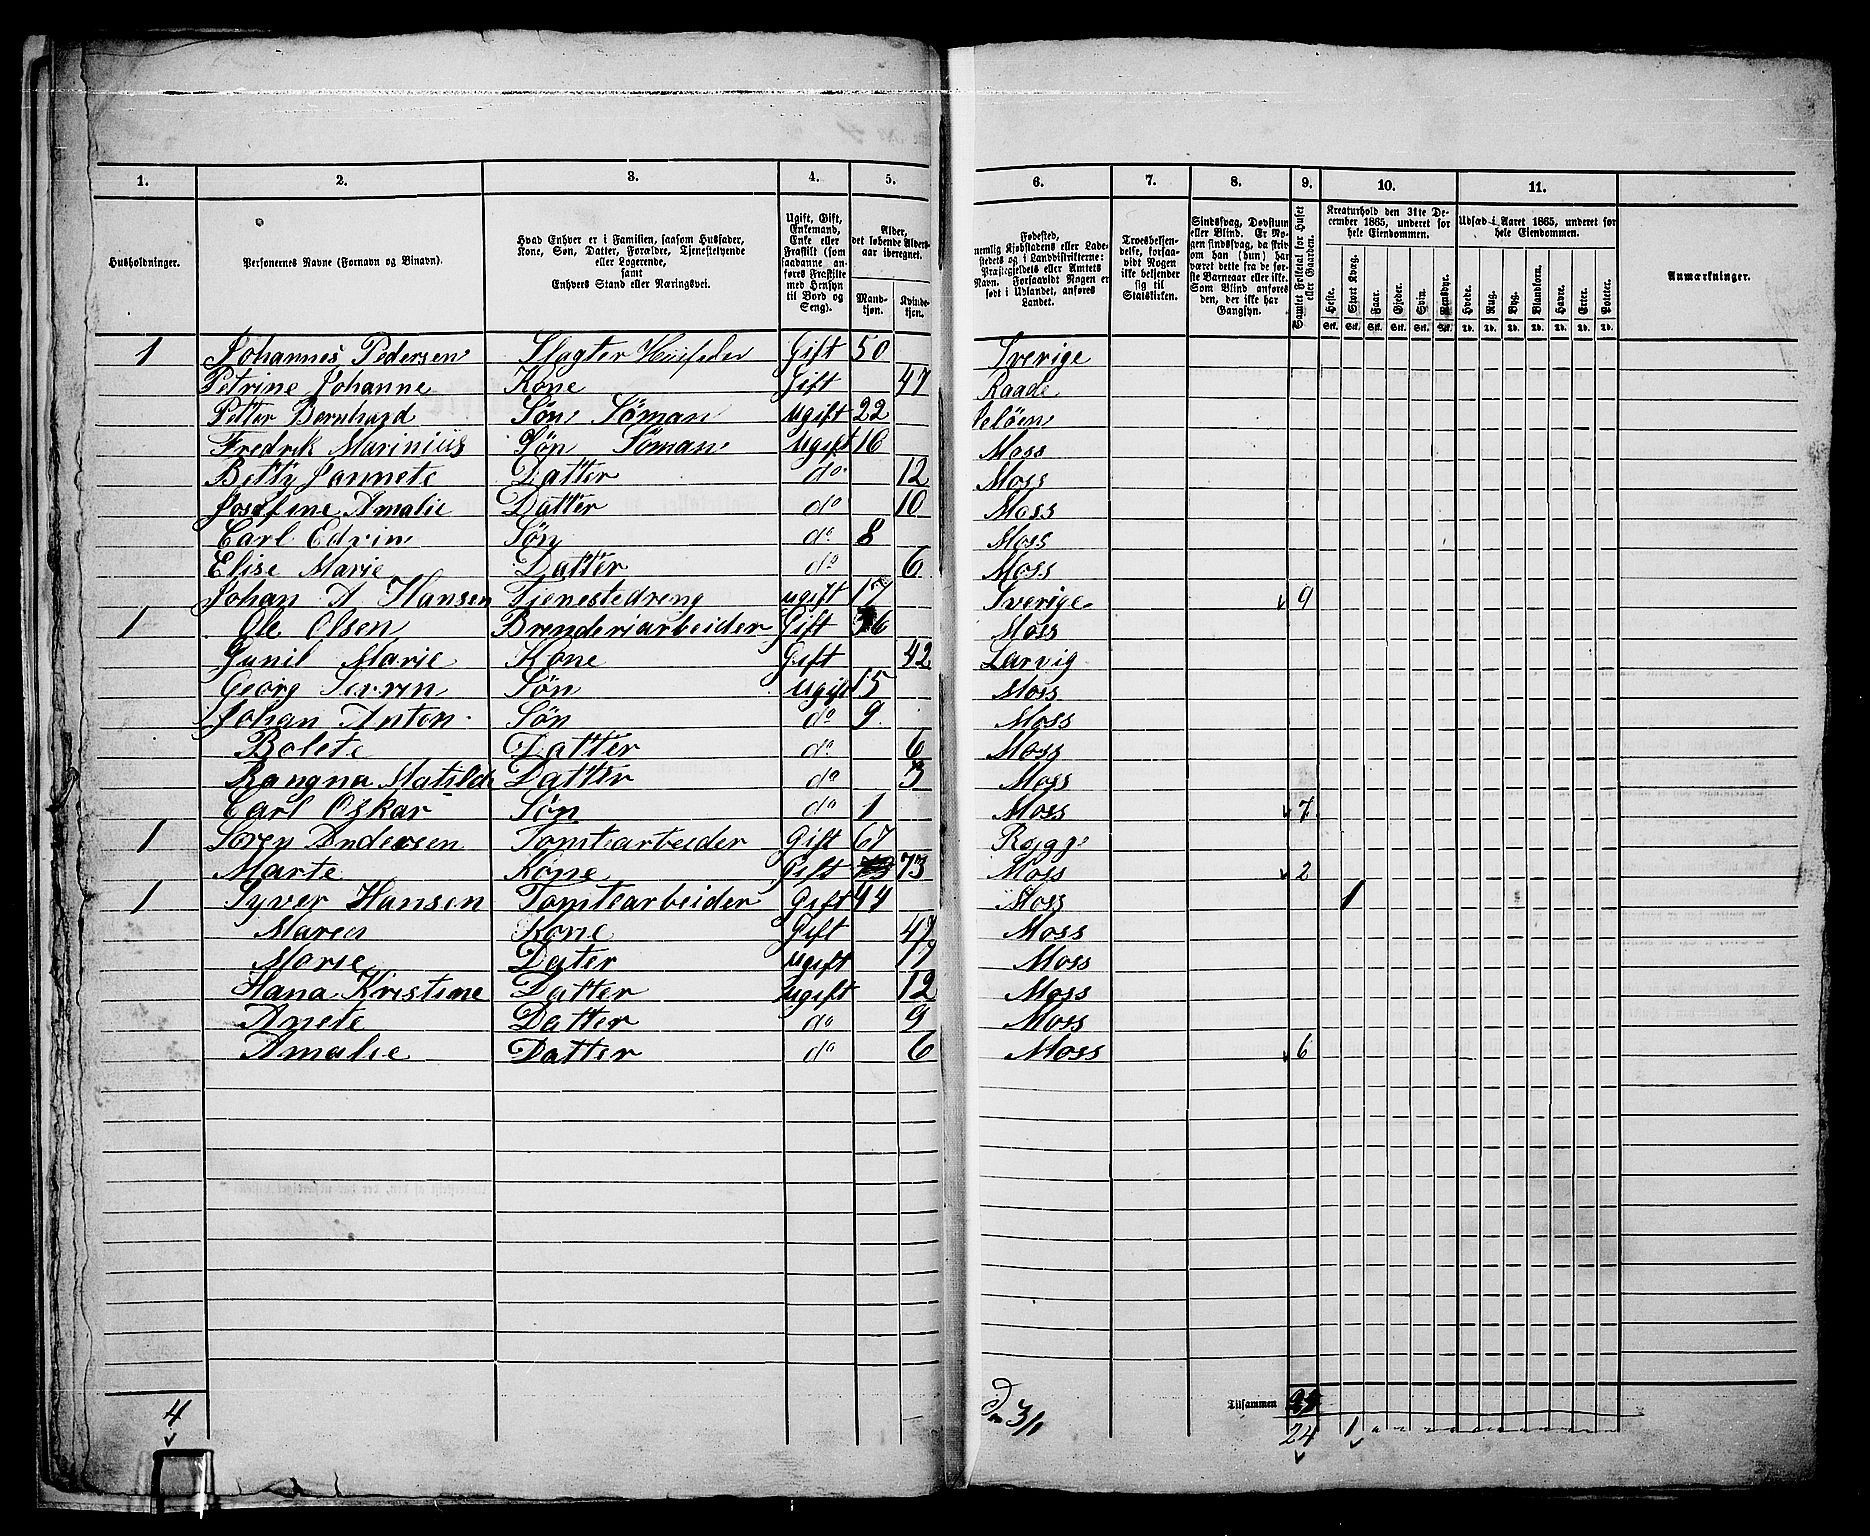 1. 2. 3. 4. 5. 6. 7. 8. 9. 10. 11.
Husholdninger.
Personernes Navne (Fornavn og Binavn).
Hvad Enhver er i Familien, saasom Husfader,
Kone, Søn, Datter, Forældre, Tjenestetyende
eller Logerende,
samt
Enhvers Stand eller Næringsvei.
Ugift, Gift,
Enkemand,
Enke eller
Fraskilt (som
saadanne an-
føres Fraskilte
med Hensyn
til Bord og
Seng).
Alder,
det løbende Alders-
aar iberegnet.
Mand-
kjøn.
Kvinde-
kjøn.
Fødested,
nemlig Kjøbstadens eller Lade-
stedets og i Landdistrikterne:
Præstegjeldets eller Amtets
Navn. Forsaavidt Nogen er
født i Udlandet, anføres
Landet.
Troesbekjen-
delse, forsaa-
vidt Nogen
ikke bekjender
sig til
Statskirken.
Sindssvag, Døvstum
eller Blind. Er No-
gen sindssvag, da skriv
om han (hun) har
været dette fra de før-
ste Barneaar eller ikke.
Som Blind anføres
den, der ikke har
Gangsyn.
Samlet Folketal for Huset
eller Gaarden.
Kreaturhold den 31te De-
cember 1865, underet for
hele Eiendommen.
Heste. Stort Kvæg. Faar. Gjeder. Svin. Rensdyr.
Stk. Stk. Stk. Stk. Stk. Stk.
Udsæd i Aaret 1865, underet for
hele Eiendommen.
Hvede. Rug. Byg. Blandkorn. Havre. Erter. Poteter.
Td. Td. Td. Td. Td. Td. Td.
Anmærkninger.
1 Johannes Pedersen Slagter Huusfader Gift 50 Sverige
Petrine Johanne Kone Gift 47 Raade
Petter Bernhard Søn Söman ugift 22 Jeløen
Fredrik Marinius Søn Söman Ugift 16 Moss
Betty Jannete Datter do 12 Moss
Josefine Amalie Datter do 10 Moss
Carl Edvin Søn do 8 Moss
Elise Marie Datter do 6 Moss
Johan A Hansen Tjenestedreng ugift 17 Sverige 9
1 Ole Olsen Brenderiarbeider Gift 36 Moss
Gunil Marie Kone Gift 42 Larvig
Georg Sevrin Søn Ugift 15 Moss
Johan Anton Søn do 9 Moss
Bolete Datter do 6 Moss
Rangna Matilde Datter do 3 Moss
Carl Oskar Søn do 1 Moss 7
1 Soren Andersen Tomtearbeider Gift 67 Rygge
Marte Kone Gift 73 Moss 2
1 Syver Hansen Tomtearbeider Gift 44 Moss 1
Maren Kone Gift 47 Moss
Marie Dater ugift 17 Moss
Hana Kristine Datter Ugift 12 Moss
Anete Datter do 9 Moss
Amalie Datter do 6 Moss 6
4 3/1 Tilsammen
24 1